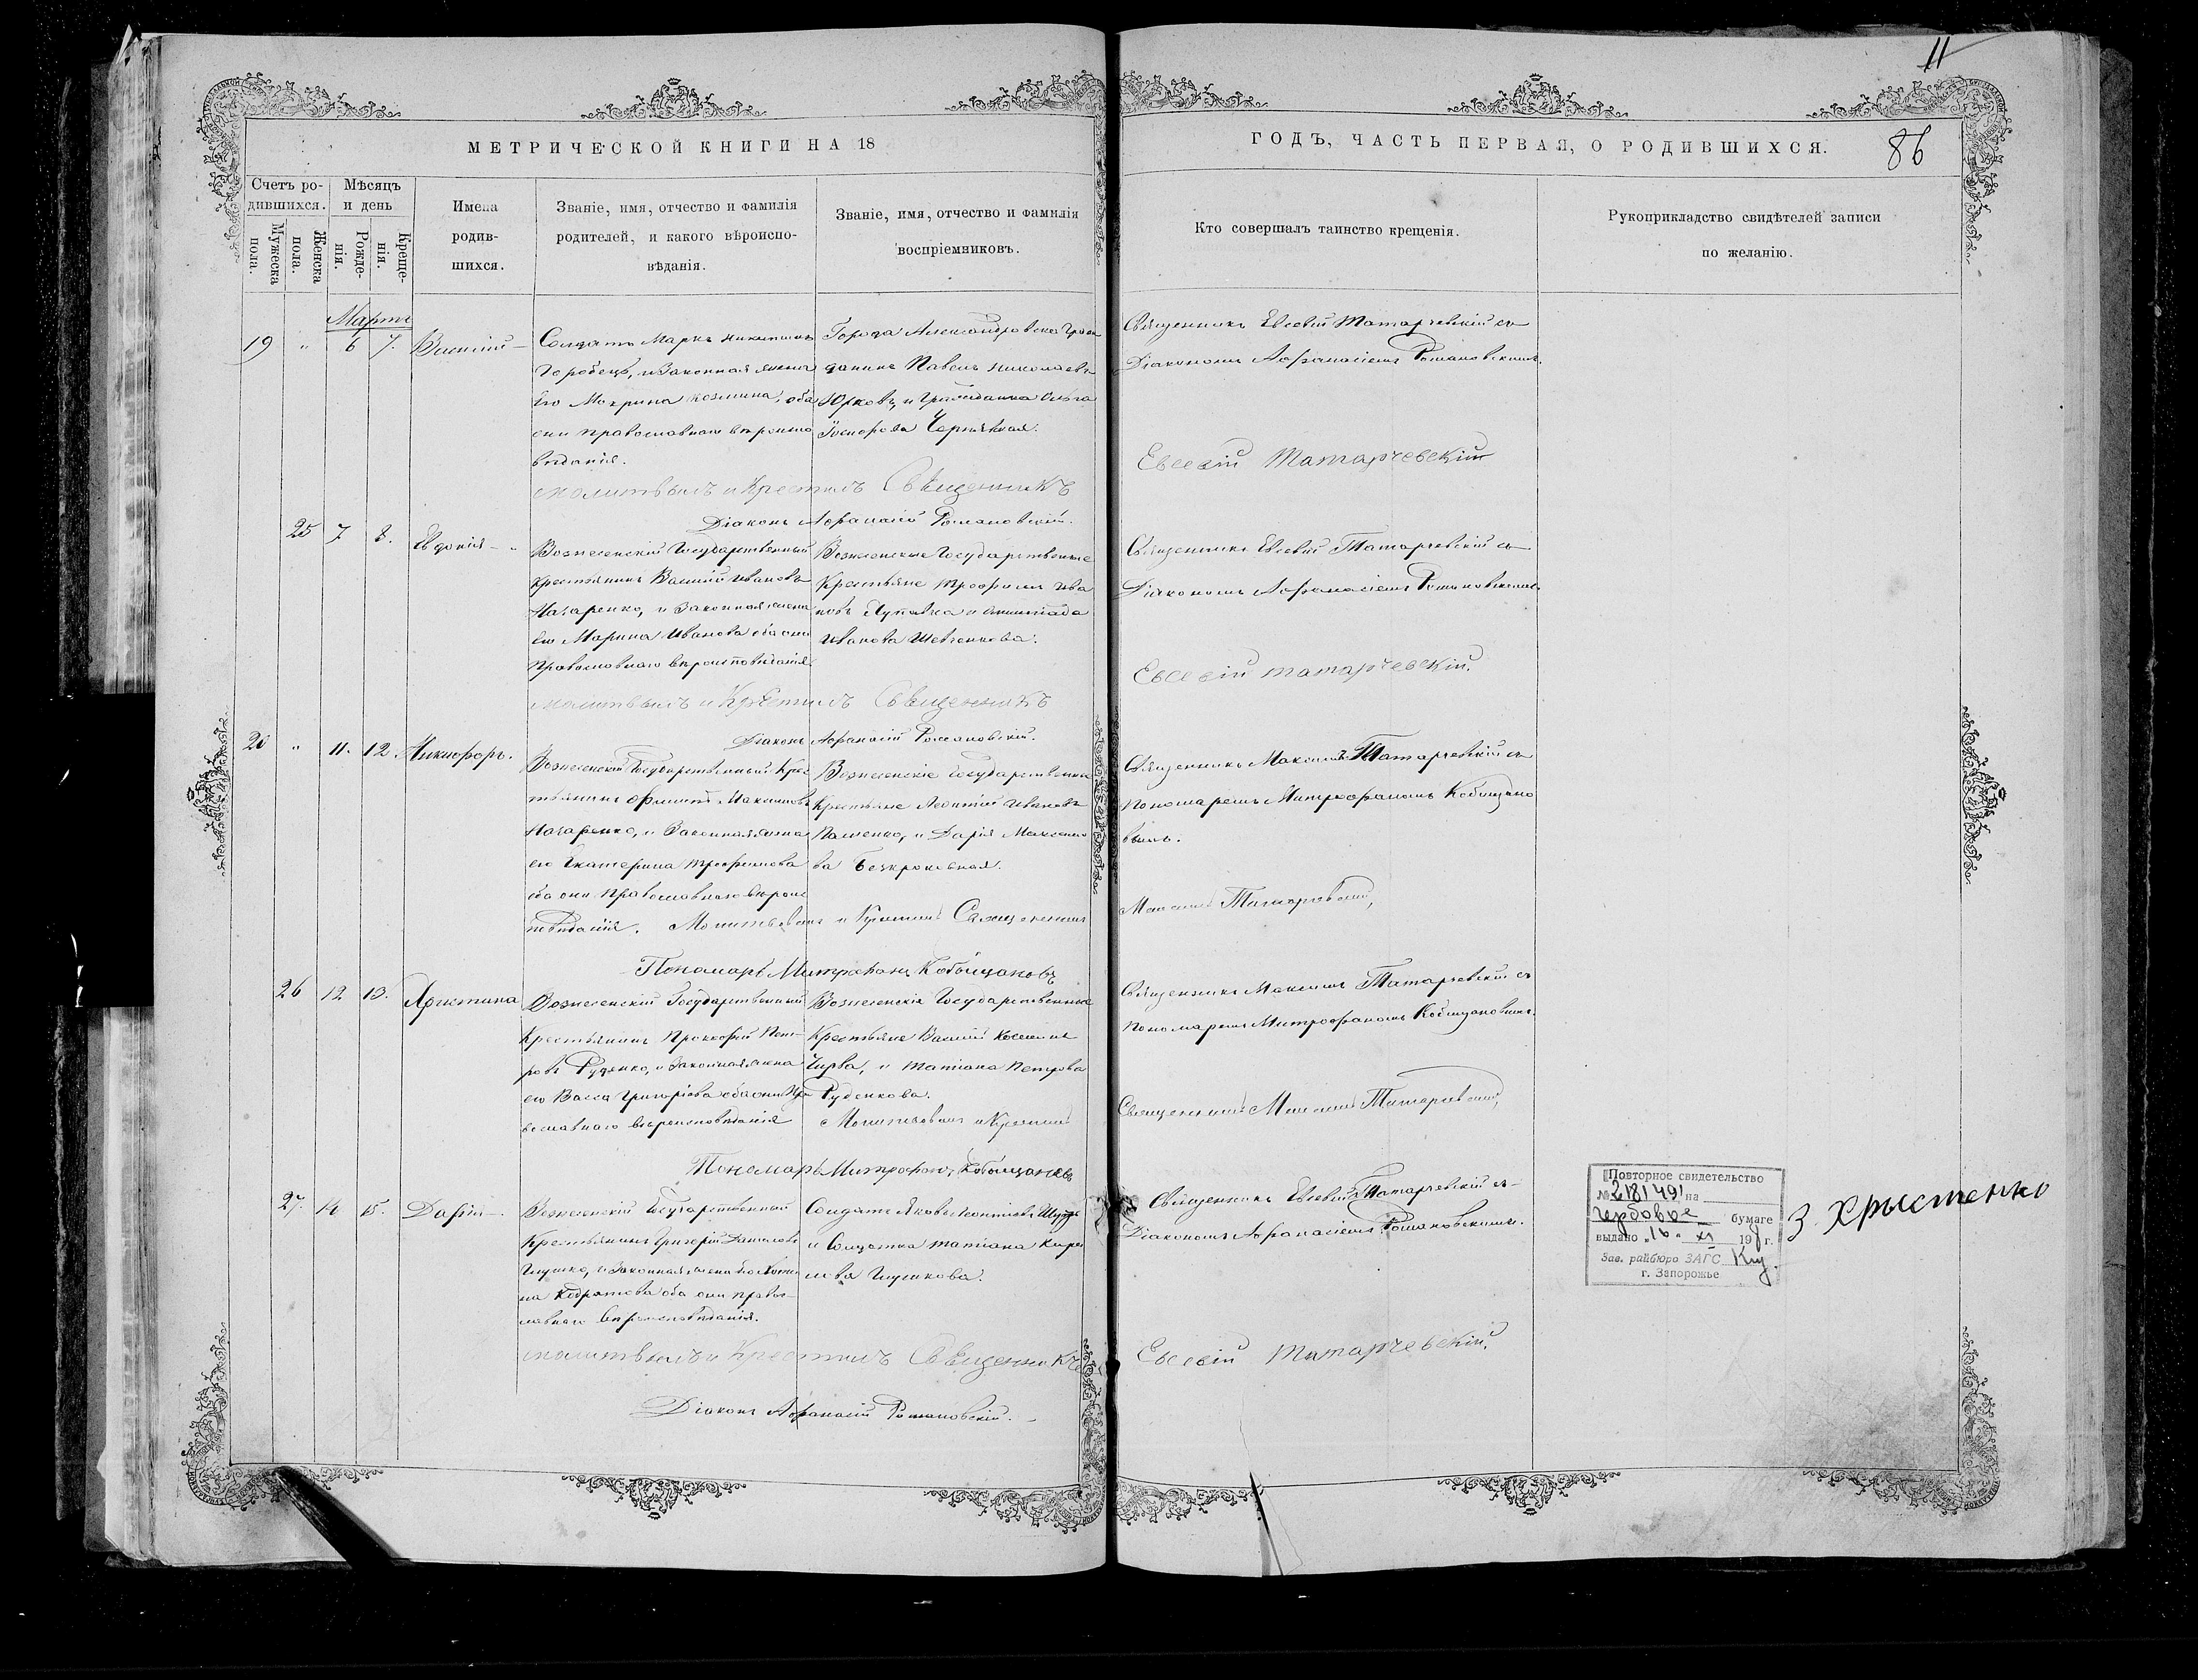 11
МЕТРИЧЕСКОЙ КНИГИ НА 18
ГОДЪ, ЧАСТЬ ПЕРВАЯ, О РОДИВШИХСЯ.
86
Счетъ ро-
дившихся.
Мужеска
пола.
Женска
пола.
Мѣсяцъ
и день
Рожде-
нія.
Креще-
нія.
Имена
родив-
шихся.
Званіе, имя, отчество и фамилія
родителей, и какого вѣроиспо-
вѣданія.
Званіе, имя, отчество и фамилія
воспріемниковъ.
Кто совершалъ таинство крещенія.
Рукоприкладство свидѣтелей записи
по желанію.
Мартъ
19 " 6 7. Василій
Солдатъ Марко Никитинъ
Горобецъ, и Законная жена
Его Мокрина Козмина, оба
они православнаго вѣроиспо
вѣданія.
Города Александровска Граж
данинъ Павелъ Николаевъ
Юрковъ, и Гражданка Ольга
Чернявская.
Священникъ Евсевій Татарчевскій съ
Діакономъ Афанасіемъ Романовскимъ.
Молитвилъ и Крестилъ Священникъ
Евсевій Татарчевскій
Діаконъ Афанасій Романовскій.
25 7 8. Евдокія
Вознесенскій Государственный
крестьянинъ Василій Ивановъ
Назаренко, и Законная жена
Его Марина Иванова оба они
Православнаго вѣроисповѣданія
Вознесенские Государственные
Крестьяне Трофимъ Ива
новъ и
Иванова Шевченкова.
Священникъ Евсевій Татарчевскій съ
Діакономъ Афанасіемъ Романовскимъ
Молитвилъ и Крестилъ Священникъ
Евсевій Татарчевскій.
Діаконъ Афанасій Романовскій.
20 " 11. 12. Никифоръ.
Вознесенскій Государственный Крес
тьянинъ Филиппъ Максимовъ
Назаренко, и Законная жена
его Екатерина Трофимова
оба они Православнаго вѣроис
повѣданія.
Вознесенскіе Государственные
Крестьяне Леонтій Ивановъ
Пащенко, и Дарія Максимо
ва Безкровная.
Священникъ Максимъ Татарчевскій съ
Пономаремъ Митрофаномъ Кобищано
вымъ.
Молитвовалъ и Крестилъ Священникъ
Максимъ Татарчевскій,
Пономарь Митрофанъ Кобыщановъ
26 12 13. Христина
Вознесенскій Государственный
Крестьянинъ Прокофій Пет-
ровъ Руденко, и Законная жена
его Васса Григоріева оба они Пра
вославнаго вѣроисповѣданія
Вознесенскіе Государственные
Крестьяне Василій Косминъ
Чирва, и Татіана Петрова
Руденкова.
Священникъ Максимъ Татарчевскій съ
Пономаремъ Митрофаномъ Кобищановымъ.
Молитвовалъ и Крестилъ
Священникъ Максимъ Татарчевскій,
Пономарь Митрофанъ Кобыщановъ
27. 14 15. Дарія
Вознесенскій Государственный
Крестьянинъ Григорій Данилов
Глушко, и Законная жена его
на Кодратова оба они право-
славнаго вѣроисповѣданія.
Солдатъ Яковъ Леонтіевъ
и Солдатка Татіана Кири
лова Глушкова.
Священникъ Евсевій Татарчевскій съ
Діакономъ Афанасіемъ Романовскимъ.
Молитвилъ и Крестилъ Священникъ
Евсевій Татарчевскій.
Діаконъ Афанасій Романовскій.
Повторное свидетельство
№ 2181491 на
гербовое бумаге
выдано "16" XI 198 г.
Зав. райбюро ЗАГС
г. Запорожье
З. Хрыстенко